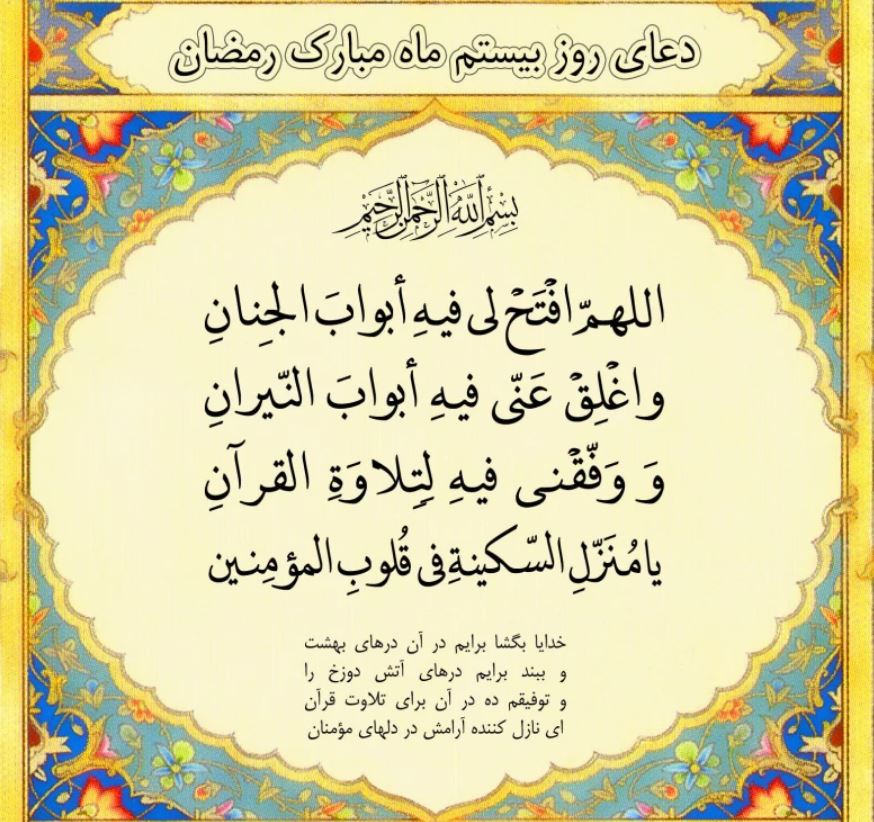 دعای روز بیستم ماه مبارک رمضان
بِسْمِ اللهِ الرَّحْمنِ الرَّحِيمِ
اللهمّ افْتَحْ لی فیهِ أبوابَ الجِنانِ
واغْلِقْ عَنّی فیهِ أبوابَ النّیرانِ
وَ وَفّقْنی فیهِ لِتِلاوَةِ القرآنِ
یا مُنَزّلِ السّکینةِ فی قُلوبِ المؤمِنین
خدایا بگشا برایم در آن درهای بهشت
و ببند برایم درهای آتش دوزخ را
و توفیقم ده در آن برای تلاوت قرآن
ای نازل کننده آرامش در دلهای مؤمنان